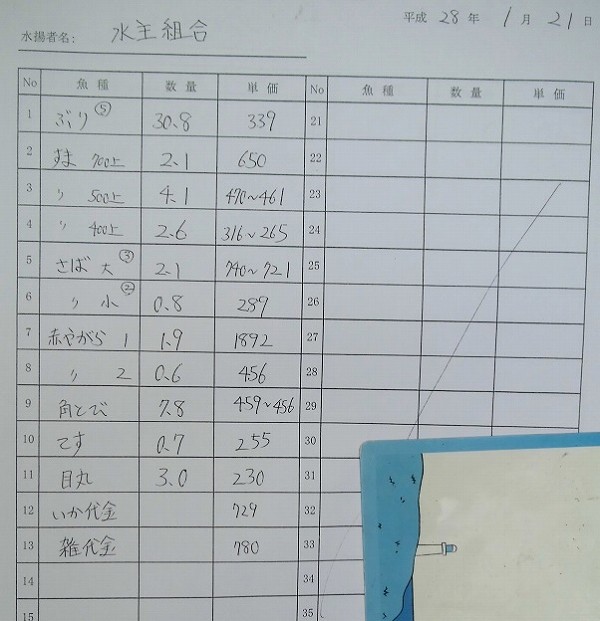 平成 28 年 1 月 21 日
水揚者名: 水主組合
No 魚種 数量 単価 No 魚種 数量 単価
1 ぶり ⑤ 30.8 339 21
2 すま 700上 2.1 650 22
3 〃 500上 4.1 470~461 23
4 〃 400上 2.6 316~265 24
5 さば 大 ③ 2.1 740~721 25
6 〃 小 ② 0.8 289 26
7 赤やがら 1 1.9 1892 27
8 〃 2 0.6 456 28
9 角とび 7.8 459~456 29
10 てす 0.7 255 30
11 目丸 3.0 230 31
12 いか代金 729 32
13 雑代金 780 33
14 34
15 35